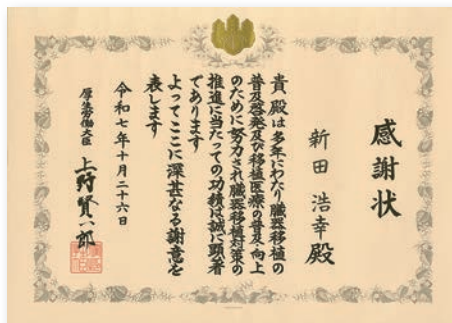 感謝状
新田浩幸殿
貴殿は多年にわたり臓器移植の
普及啓発及び移植医療の普及向上
のために努力され臓器移植対策の
推進に当たっての功績は誠に顕著
であります
よってここに深甚なる謝意を
表します
令和七年十月二十六日
厚生労働大臣 上野賢一郎